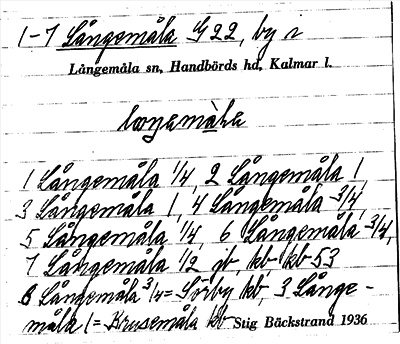 1-7 Långemåla G22, by i
Långemåla sn, Handbörds hd, Kalmar l.
1 Långemåla 1/4, 2 Långemåla 1,
3 Långemåla 1, 4 Långemåla 3/4,
5 Långemåla 1/4, 6 Långemåla 3/4,
7 Långemåla 1/2 jb, kb, kb 53
8 Långemåla 3/4 = Sörby kb, 3 Långe-
måla 1 = Krusemåla kb Stig Bäckstrand 1936